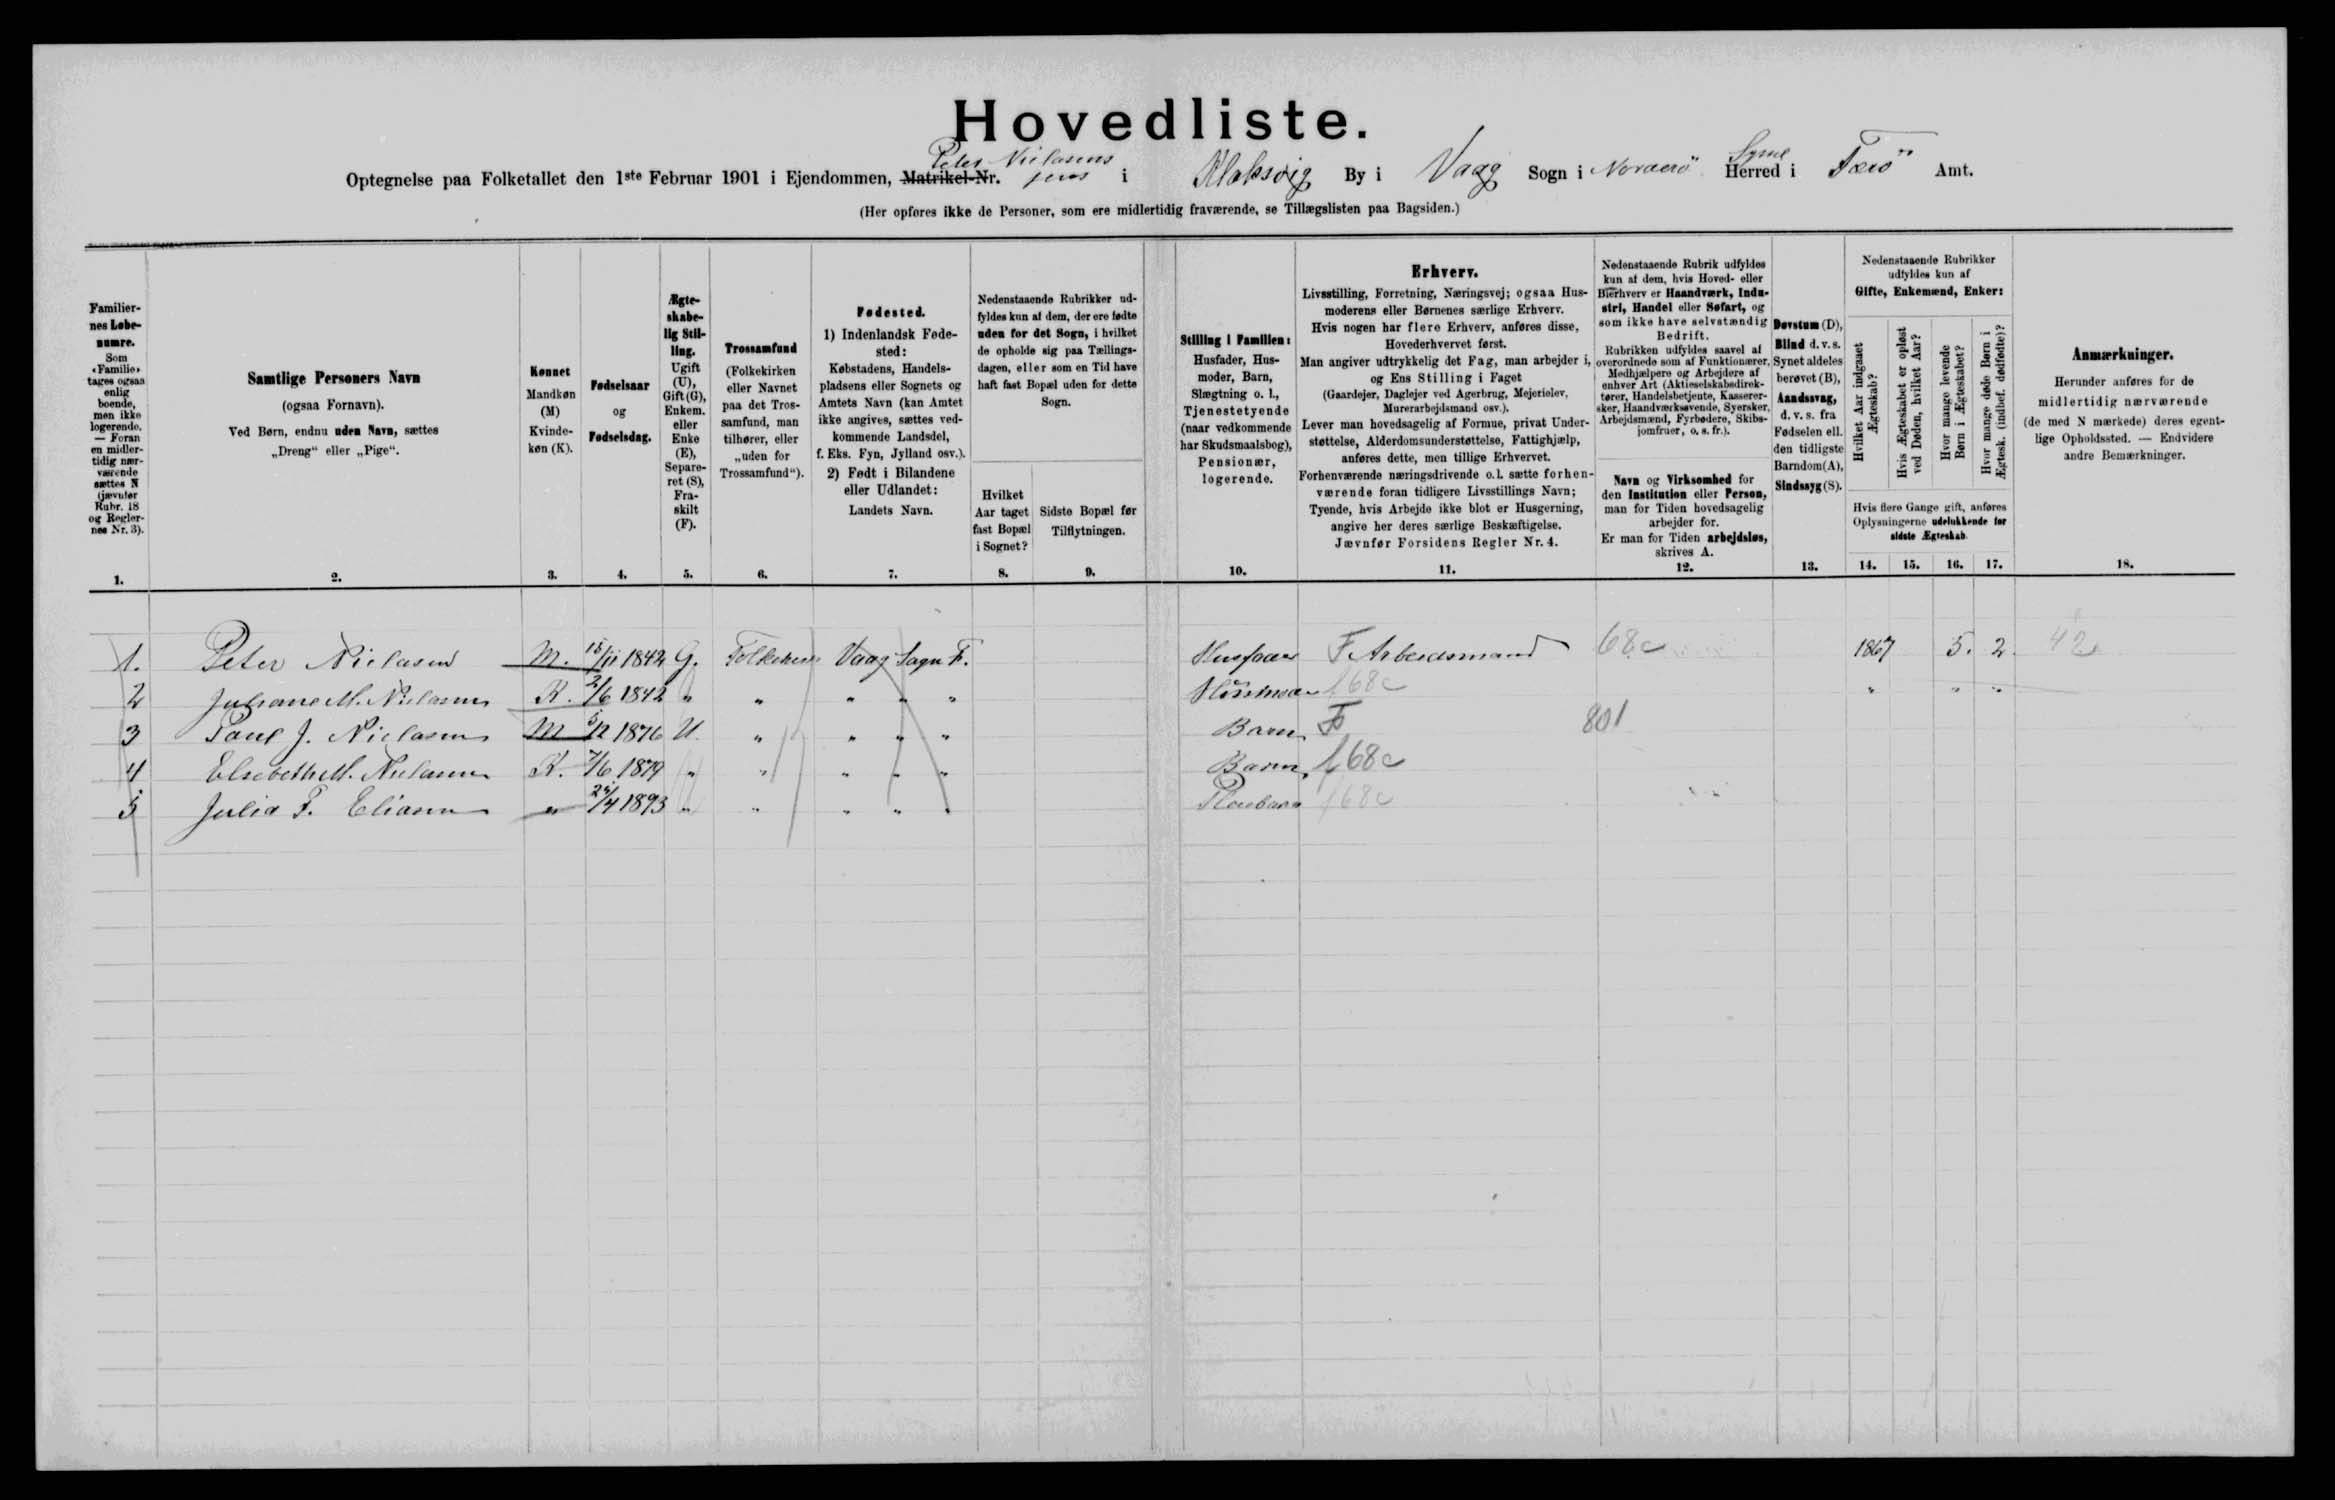 Hovedliste.
Optegnelse paa Folketallet den 1ste Februar 1901 i Ejendommen, Matrikel-Nr. Peter Nielasens i Klaksvig By i Vaag Sogn i Norderö Herred i Færö Amt.
(Her opføres ikke de Personer, som ere midlertidig fraværende, se Tillægslisten paa Bagsiden.)
Familier-
nes Løbe-
numre.
Som
«Familie»
tages ogsaa
enlig
boende,
men ikke
logerende.
— Foran
en midler-
tidig nær-
værende
sættes N
(jævnfør
Rubr. 18
og Regler-
nes Nr. 3).
1.
Samtlige Personers Navn
(ogsaa Fornavn).
Ved Børn, endnu uden Navn, sættes
„Dreng“ eller „Pige“.
2.
Kønnet
Mandkøn
(M)
Kvinde-
køn (K).
3.
Fødselsaar
og
Fødselsdag.
4.
Ægte-
skabe-
lig Stil-
ling.
Ugift
(U),
Gift (G),
Enkem.
eller
Enke
(E),
Separe-
ret (S),
Fra-
skilt
(F).
5.
Trossamfund
(Folkekirken
eller Navnet
paa det Tros-
samfund, man
tilhører, eller
„uden for
Trossamfund“).
6.
Fødested.
1) Indenlandsk Føde-
sted:
Købstadens, Handels-
pladsens eller Sognets og
Amtets Navn (kan Amtet
ikke angives, sættes ved-
kommende Landsdel,
f. Eks. Fyn, Jylland osv.).
2) Født i Bilandene
eller Udlandet:
Landets Navn.
7.
Nedenstaaende Rubrikker ud-
fyldes kun af dem, der ere fødte
uden for det Sogn, i hvilket
de opholde sig paa Tællings-
dagen, eller som en Tid have
haft fast Bopæl uden for dette
Sogn.
Hvilket
Aar taget
fast Bopæl
i Sognet?
8.
Sidste Bopæl før
Tilflytningen.
9.
Stilling i Familien:
Husfader, Hus-
moder, Barn,
Slægtning o. l.,
Tjenestetyende
(naar vedkommende
har Skudsmaalsbog),
Pensionær,
logerende.
10.
Erhverv.
Livsstilling, Forretning, Næringsvej; ogsaa Hus-
moderens eller Børnenes særlige Erhverv.
Hvis nogen har flere Erhverv, anføres disse,
Hovederhvervet først.
Man angiver udtrykkelig det Fag, man arbejder i,
og Ens Stilling i Faget
(Gaardejer, Daglejer ved Agerbrug, Mejerielev,
Murerarbejdsmand osv.).
Lever man hovedsagelig af Formue, privat Under-
støttelse, Alderdomsunderstøttelse, Fattighjælp,
anføres dette, men tillige Erhvervet.
Forhenværende næringsdrivende o.l. sætte forhen-
værende foran tidligere Livsstillings Navn;
Tyende, hvis Arbejde ikke blot er Husgerning,
angive her deres særlige Beskæftigelse.
Jævnfør Forsidens Regler Nr. 4.
11.
Nedenstaaende Rubrik udfyldes
kun af dem, hvis Hoved- eller
Bierhverv er Haandværk, Indu-
stri, Handel eller Søfart, og
som ikke have selvstændig
Bedrift.
Rubrikken udfyldes saavel af
overordnede som af Funktionærer,
Medhjælpere og Arbejdere af
enhver Art (Aktieselskabsdirek-
tører, Handelsbetjente, Kasserer-
sker, Haandværkssvende, Syersker,
Arbejdsmænd, Fyrbødere, Skibs-
jomfruer, o. s. fr.).
Navn og Virksomhed for
den Institution eller Person,
man for Tiden hovedsagelig
arbejder for.
Er man for Tiden arbejdsløs,
skrives A.
12.
Døvstum (D),
Blind d. v. s.
Synet aldeles
berøvet (B),
Aandssvag,
d. v. s. fra
Fødselen ell.
den tidligste
Barndom (A),
Sindssyg (S).
13.
Nedenstaaende Rubrikker
udfyldes kun af
Gifte, Enkemænd, Enker:
Hvilket Aar indgaaet
Ægteskab?
Hvis Ægteskabet er opløst
ved Døden, hvilket Aar?
Hvor mange levende
Børn i Ægteskabet?
Hvor mange døde Børn i
Ægtesk. (indbef. dødfødte)?
Hvis flere Gange gift, anføres
Oplysningerne udelukkende for
sidste Ægteskab.
14. 15. 16. 17.
Anmærkninger.
Herunder anføres for de
midlertidig nærværende
(de med N mærkede) deres egent-
lige Opholdssted. — Endvidere
andre Bemærkninger.
18.
1. Peter Nielasen M. 15/11 1842 G. Vaag Sogn F. Husfader F. Arbeidsmand 68c 1867 5. 2. 42
2 Juliane M. Nielasen K. 2/6 1842 „ „ „ „ „ 68c „ „ „
3 Poul J. Nielasen M 1876 U. „ „ „ „ Barn F 801
4 Elsebeth M. Nielasen K. 7/6 1879 „ „ „ „ „ Barn f68c
5 Julia F. Eliasen „ 1893 „ „ „ „ „ Pleiebarn f68c